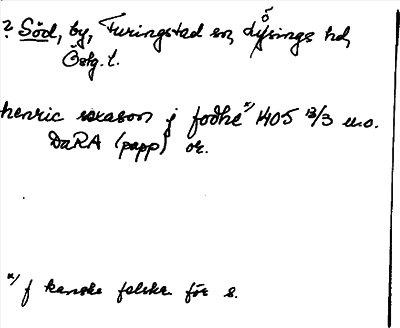 ? Söd, by, Furingstad sn, Lösings hd,
Östg. l.
henric raxason j fodhe x/ 1405 13/3 u.o.
DaRA (papp) or.
x/ f kanske felskr. för s.